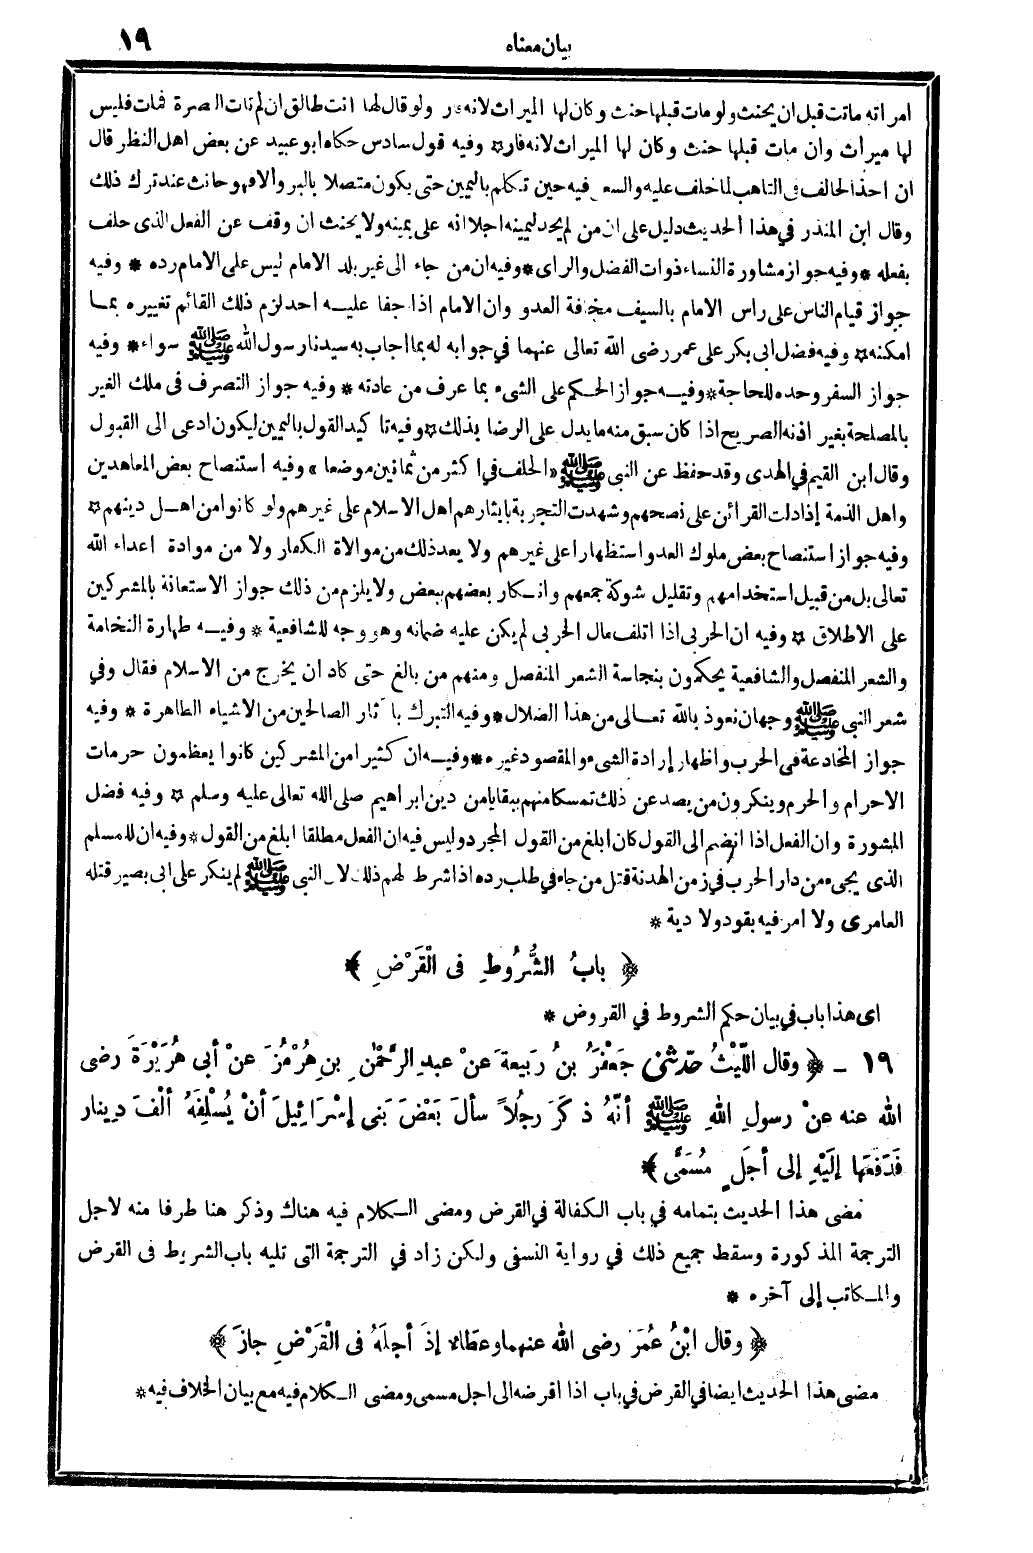 بيان معناه
١٩
امراته ماتت قبل ان يحنث ولو مات قبلها حنث وكان لها الميراث لانه ولو قال لها انت طالق ان لم تات البصرة فمات فليس
لها ميراث وان مات قبلها حنث وكان لها الميراث لانه فار ۞ وفيه قول سادس حكاه ابو عبيد عن بعض اهل النظر قال
ان اخذ الحالف فى التاهب لما حلف عليه والسعى فيه حين تكلم باليمين حتى يكون متصلا بالبر والا فهو حانث عند ترك ذلك
وقال ابن المنذر في هذا الحديث دليل على ان من لم يحد ليمينه اجلا انه على يمينه ولا يحنث ان وقف عن الفعل الذى حلف
بفعله * وفيه جواز مشاورة النساء ذوات الفضل والراى * وفيه ان من جاء الى غير بلد الامام ليس على الامام رده * وفيه
جواز قيام الناس على راس الامام بالسيف مخافة العدو وان الامام اذا جفا عليه احد لزم ذلك القائم تغييره بما
امكنه ۞ وفيه فضل ابى بكر على عمر رضى الله تعالى عنهما في جوابه له بما اجاب به سيدنا رسول الله ﷺ سواء * وفيه
جواز السفر وحده للحاجة * وفيه جواز الحكم على الشىء بما عرف من عادته * وفيه جواز التصرف فى ملك الغير
بالمصلحة بغير اذنه الصريح اذا كان سبق منه ما يدل على الرضا بذلك ۞ وفيه تا كيد القول باليمين ليكون ادعى الى القبول
وقال ابن القيم في الهدى وقد حفظ عن النبى ﷺ «الحلف في اكثر من ثمانين موضعا» وفيه استنصاح بعض المعاهدين
واهل الذمة إذا دلت القرائن على نصحهم وشهدت التجربة بايثارهم اهل الاسلام على غيرهم ولو كانوا من اهل دينهم ۞
وفيه جواز استنصاح بعض ملوك العدو استظهارا على غيرهم ولا يعد ذلك من موالاة الكفار ولا من موادة اعداء الله
تعالى بل من قبيل استخدامهم وتقليل شوكة جمعهم وانكار بعضهم ببعض ولا يلزم من ذلك جواز الاستعانة بالمشركين
على الاطلاق ۞ وفيه ان الحربى اذا اتلف مال الحربى لم يكن عليه ضمانه وهو وجه للشافعية * وفيه طهارة النخامة
والشعر المنفصل والشافعية يحكمون بنجاسة الشعر المنفصل ومنهم من بالغ حتى كاد ان يخرج من الاسلام فقال وفي
شعر النبى ﷺ وجهان نعوذ بالله تعالى من هذا الضلال * وفيه التبرك با ثار الصالحين من الاشياء الطاهرة * وفيه
جواز المخادعة فى الحرب واظهار إرادة الشىء والمقصود غيره * وفيه ان كثيرا من المشركين كانوا يعظمون حرمات
الاحرام والحرم وينكرون من يصد عن ذلك تمسكا منهم ببقايا من دين ابراهيم صلى الله تعالى عليه وسلم ۞ وفيه فضل
المشورة وان الفعل اذا انضم الى القول كان ابلغ من القول المجرد وليس فيه ان الفعل مطلقا ابلغ من القول * وفيه ان للمسلم
الذى يجىء من دار الحرب في زمن الهدنة قتل من جاء في طلب رده اذا شرط لهم ذلك لان النبى ﷺ لم ينكر على ابى بصير قتله
العامرى ولا امر فيه بقود ولا دية *
﴿ بابُ الشُّرُوطِ فى الْقَرْضِ ﴾
اى هذا باب في بيان حكم الشروط في القروض *
١٩ ـ ﴿ وقال اللَّيْثُ حدّثنى جَعْفَرُ بنُ رَبيعةَ عنْ عبدِ الرَّحْمٰنِ بنِ هُرْمُزَ عنْ أبى هُرَيْرَةَ رضى
الله عنه عنْ رسولِ اللهِ ﷺ أنَّهُ ذكَرَ رجُلاً سألَ بَعْضَ بَنى إسْرَائِيلَ أنْ يُسْلِفَهُ ألْفَ دِينار
فَدَفَعَها إلَيْهِ إلى أجَلٍ مُسَمًّى ﴾
مضى هذا الحديث بتمامه في باب الكفالة في القرض ومضى الكلام فيه هناك وذكر هنا طرفا منه لاجل
الترجمة المذكورة وسقط جميع ذلك في رواية النسفى ولكن زاد في الترجمة التى تليه باب الشروط فى القرض
والمكاتب إلى آخره *
﴿ وقال ابْنُ عُمَرَ رضى الله عنهما وعطاء إذَ أجلَهُ فى الْقَرْضِ جازَ ﴾
مضى هذا الحديث ايضا في القرض في باب اذا اقرضه الى اجل مسمى ومضى الكلام فيه مع بيان الخلاف فيه *